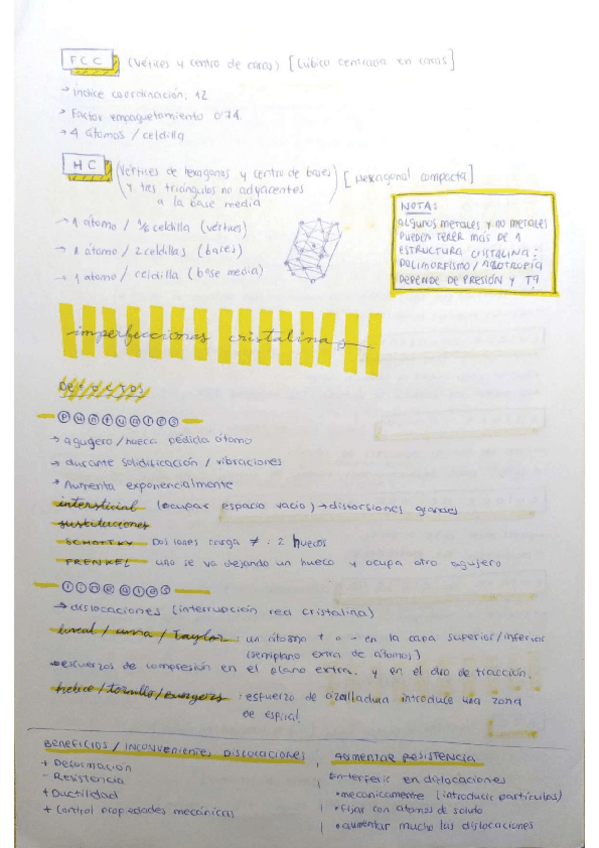 FCC (vértices y centro de caras) [Cúbica centrada en caras]
→ Índice coordinación: 12
→ Factor empaquetamiento 0'74
→ 4 átomos / celdilla
HC (vértices de hexágonos y centro de bases [Hexagonal compacta]
y tres triángulos no adyacentes
a la base media)
→ 1 átomo / 1/6 celdilla (vértices)
→ 1 átomo / 2 celdillas (bases)
→ 1 átomo / celdilla (base media)
NOTA:
ALGUNOS METALES Y NO METALES
PUEDEN TENER MÁS DE 1
ESTRUCTURA CRISTALINA:
POLIMORFISMO / ALOTROPÍA
DEPENDE DE PRESIÓN Y Tª
imperfecciones cristalinas
DEFECTOS
Puntuales
→ agugero / hueco pédida átomo
→ durante solidificación / vibraciones
→ Aumenta exponencialmente
intersticial (ocupar espacio vacío) → distorsiones grandes
sustituciones
SCHOTTKY Dos iones carga ≠ : 2 huecos
FRENKEL uno se va dejando un hueco y ocupa otro agujero
lineales
→ dislocaciones (interrupción red cristalina)
lineal / cuña / Taylor : un átomo + o - en la capa superior/inferior
(semiplano extra de átomos)
esfuerzos de compresión en el plano extra, y en el otro de tracción.
helice / tornillo / burgers : esfuerzo de cizalladura introduce una zona
de espiral.
BENEFICIOS / INCONVENIENTES DISLOCACIONES
+ Deformación
- Resistencia
+ Ductilidad
+ Control propiedades mecánicas
AUMENTAR RESISTENCIA
Enterferir en dislocaciones
• mecánicamente (introducir partículas)
• Fijar con átomos de soluto
• aumentar mucho las dislocaciones